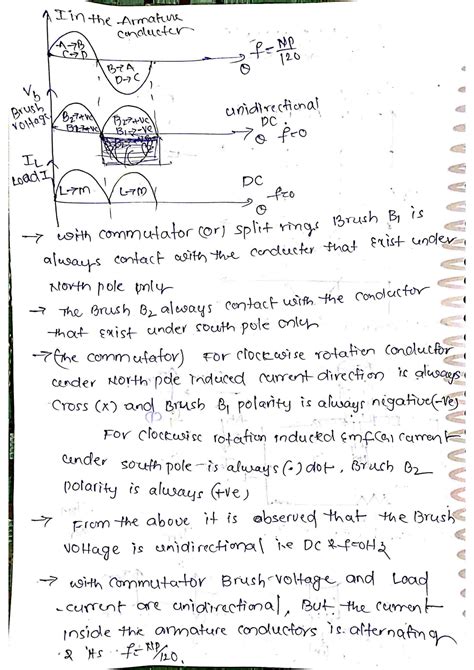 I in the Armature
conductor
A→B
C→D
B→A
D→C
θ
f = NP/120
Vb
Brush
voltage
B2→+ve
B1→-ve
B2→+ve
B1→-ve
unidirectional
DC
θ f=0
IL
Load I
L→M
L→M
DC
θ f=0
→ with commutator (or) split rings Brush B1 is
always contact with the conducter that Exist under
North pole only
→ The Brush B2 always contact with the conductor
that exist under south pole only
→ (the commutator) For clockwise rotation conductor
under North pole induced current direction is always
Cross (x) and Brush B1 polarity is always nigative(-ve)
For clockwise rotation inducted Emf (or) current
under south pole is always (·) dot, Brush B2
polarity is always (+ve)
→ From the above it is observed that the Brush
voltage is unidirectional i.e DC & f=0Hz
→ with commutator Brush voltage and Load
current are unidirectional, But the current
inside the armature conductors is alternating
& its f = NP/120.